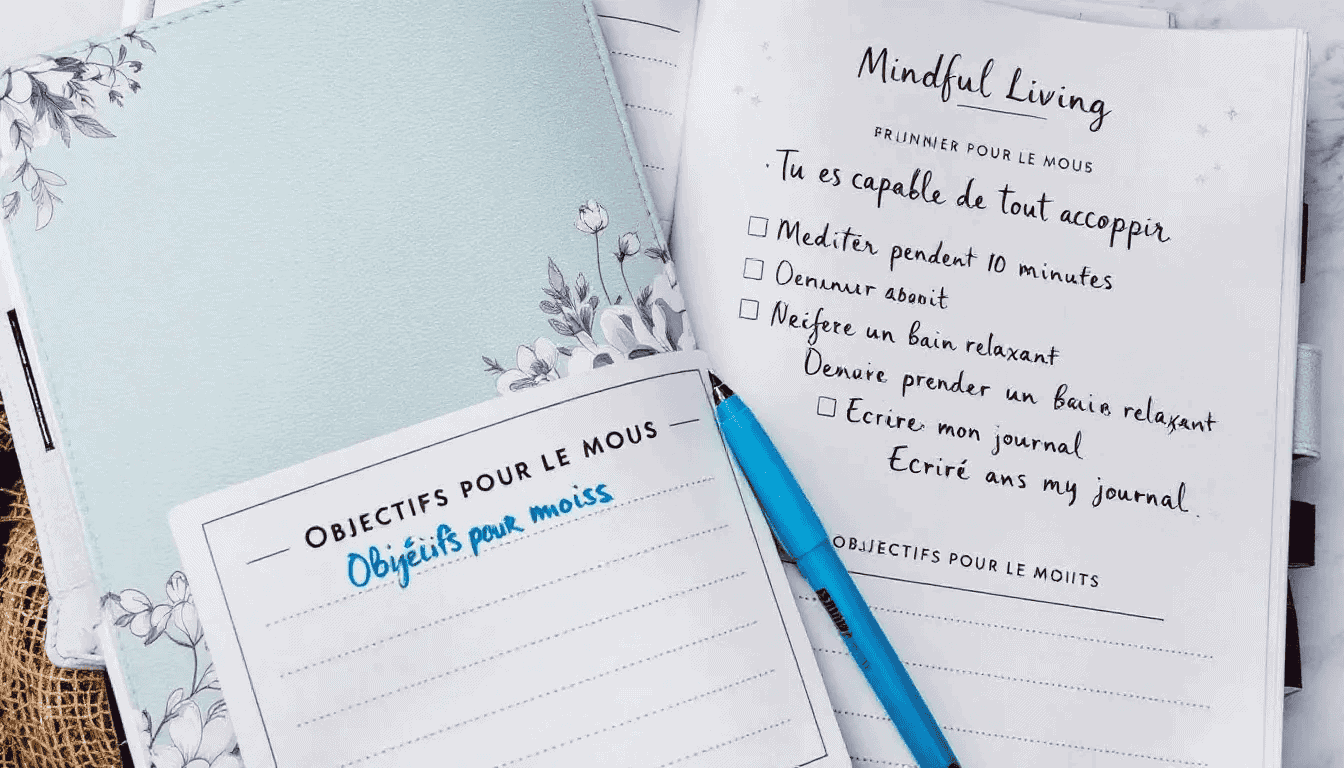 OBJECTIFS POUR LE MOUS
Objéctifs pour moiss
Mindful Living
POUR LE MOUS
· Tu es capable de tout accoppir
Mediter pendent 10 minutes
abonit
Neifere un bain relaxant
Demuire prender un bain relaxant
Ecrire mon journal
Ecriré ans my journal.
OBJJECTIFS POUR LE MOIITS